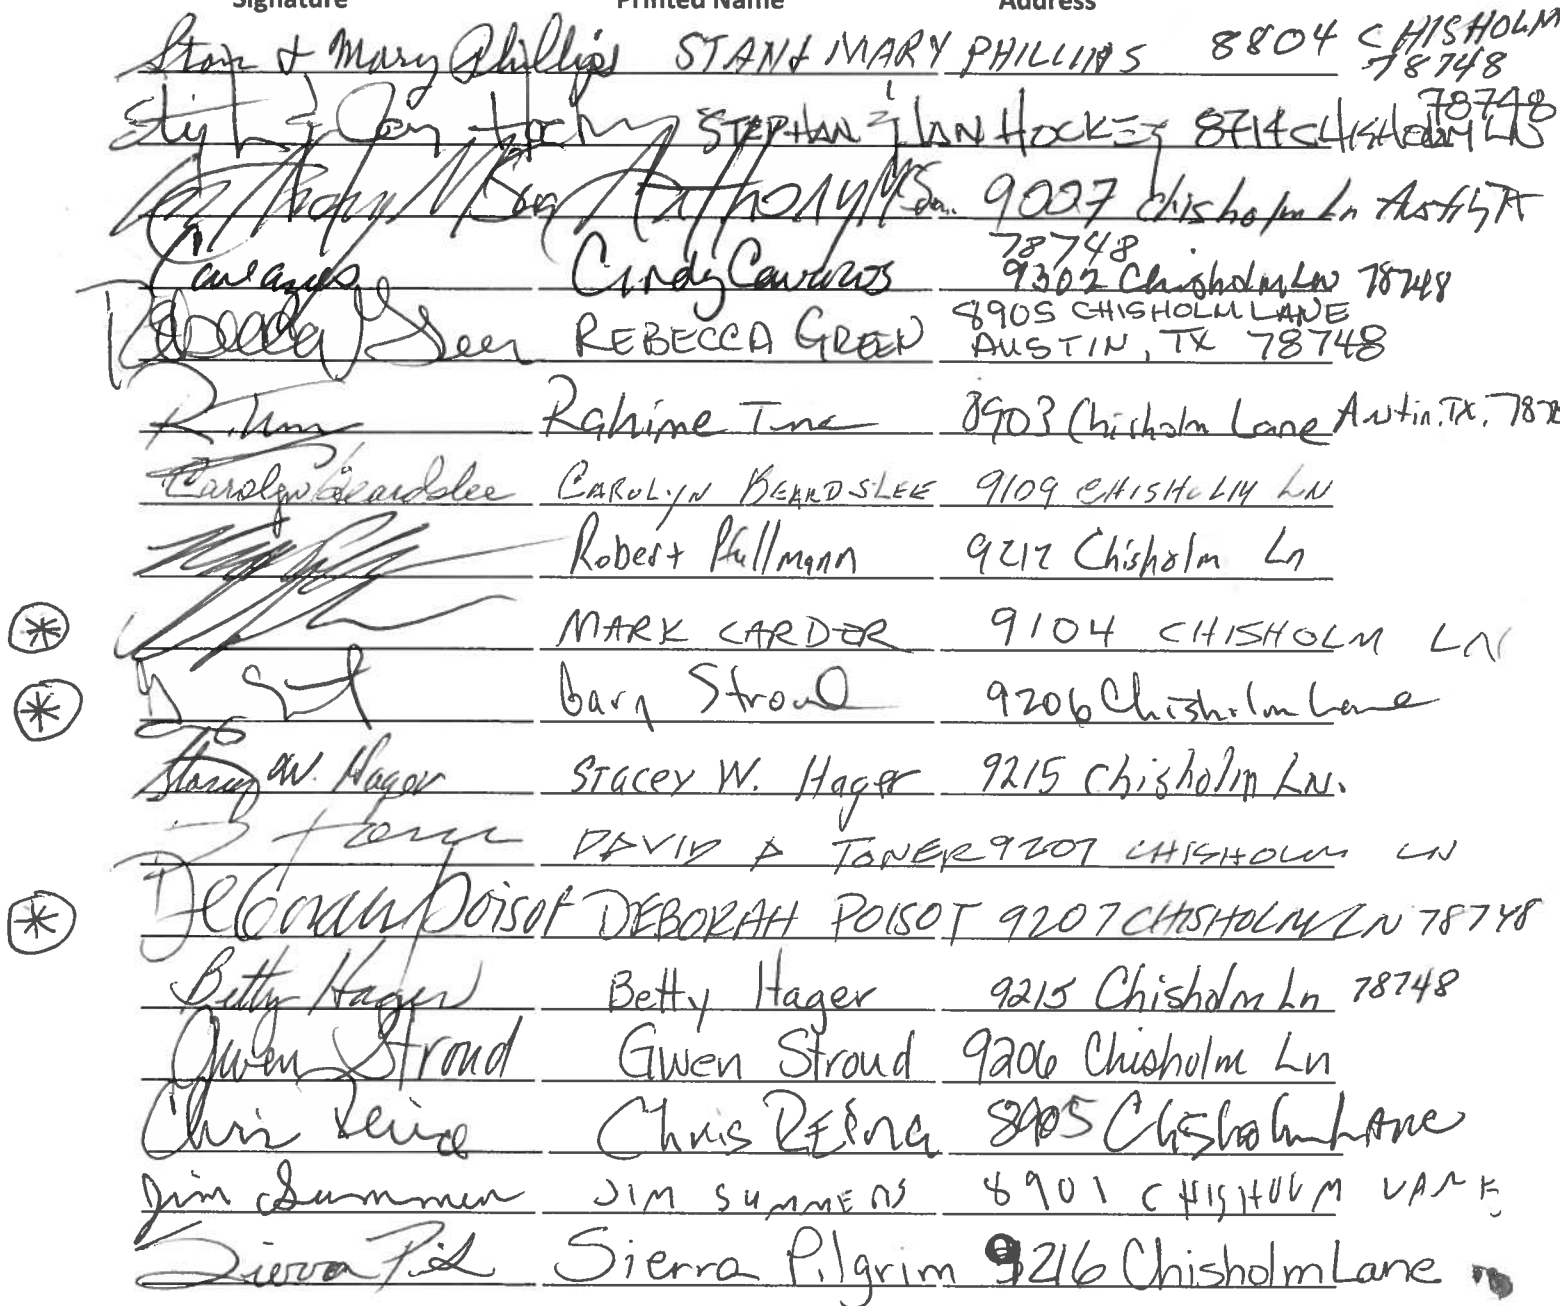 Signature Printed Name Address
Stan & Mary Phillips STAN & MARY PHILLIPS 8804 CHISHOLM 78748
STEPHAN & JAN HOCKEY 8714 CHISHOLM LN 78748
Anthony 9027 Chisholm Ln Austin TX 78748
Cavazos Cindy Cavazos 9302 Chisholm LN 78748
Rebecca Green REBECCA GREEN 8905 CHISHOLM LANE AUSTIN, TX 78748
Rahime 8903 Chisholm Lane Austin, TX,
Carolyn Beardslee CAROLYN BEARDSLEE 9109 CHISHOLM LN
Robert 9212 Chisholm Ln
* MARK CARDER 9104 CHISHOLM LN
* Gary Stroud 9206 Chisholm Lane
Stacey W. Hager Stacey W. Hager 9215 Chisholm LN.
DAVID A TONER 9207 CHISHOLM LN
* Deborah Poisot DEBORAH POISOT 9207 CHISHOLM LN 78748
Betty Hager Betty Hager 9215 Chisholm Ln 78748
Gwen Stroud Gwen Stroud 9206 Chisholm Ln
Chris Reina Chris REina 8905 Chisholm LAne
Jim Summers JIM SUMMERS 8901 CHISHOLM LANE
Sierra Sierra Pilgrim 9216 Chisholm Lane